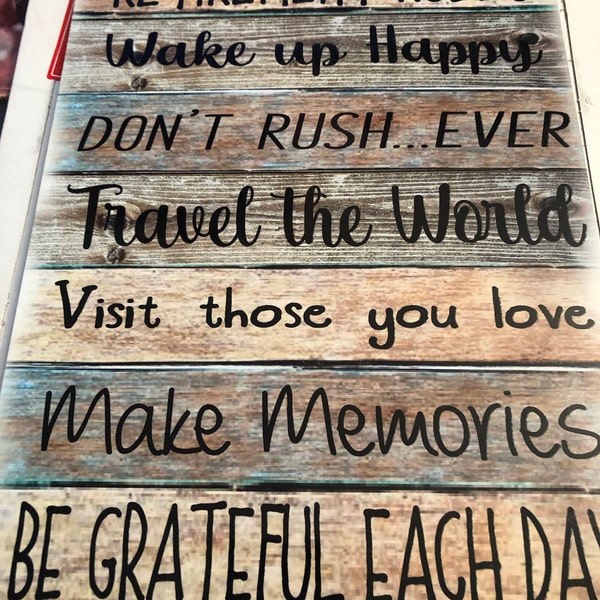 RETIREMENT RULES
Wake up Happy
DON'T RUSH...EVER
Travel the World
Visit those you love
Make Memories
BE GRATEFUL EACH DAY